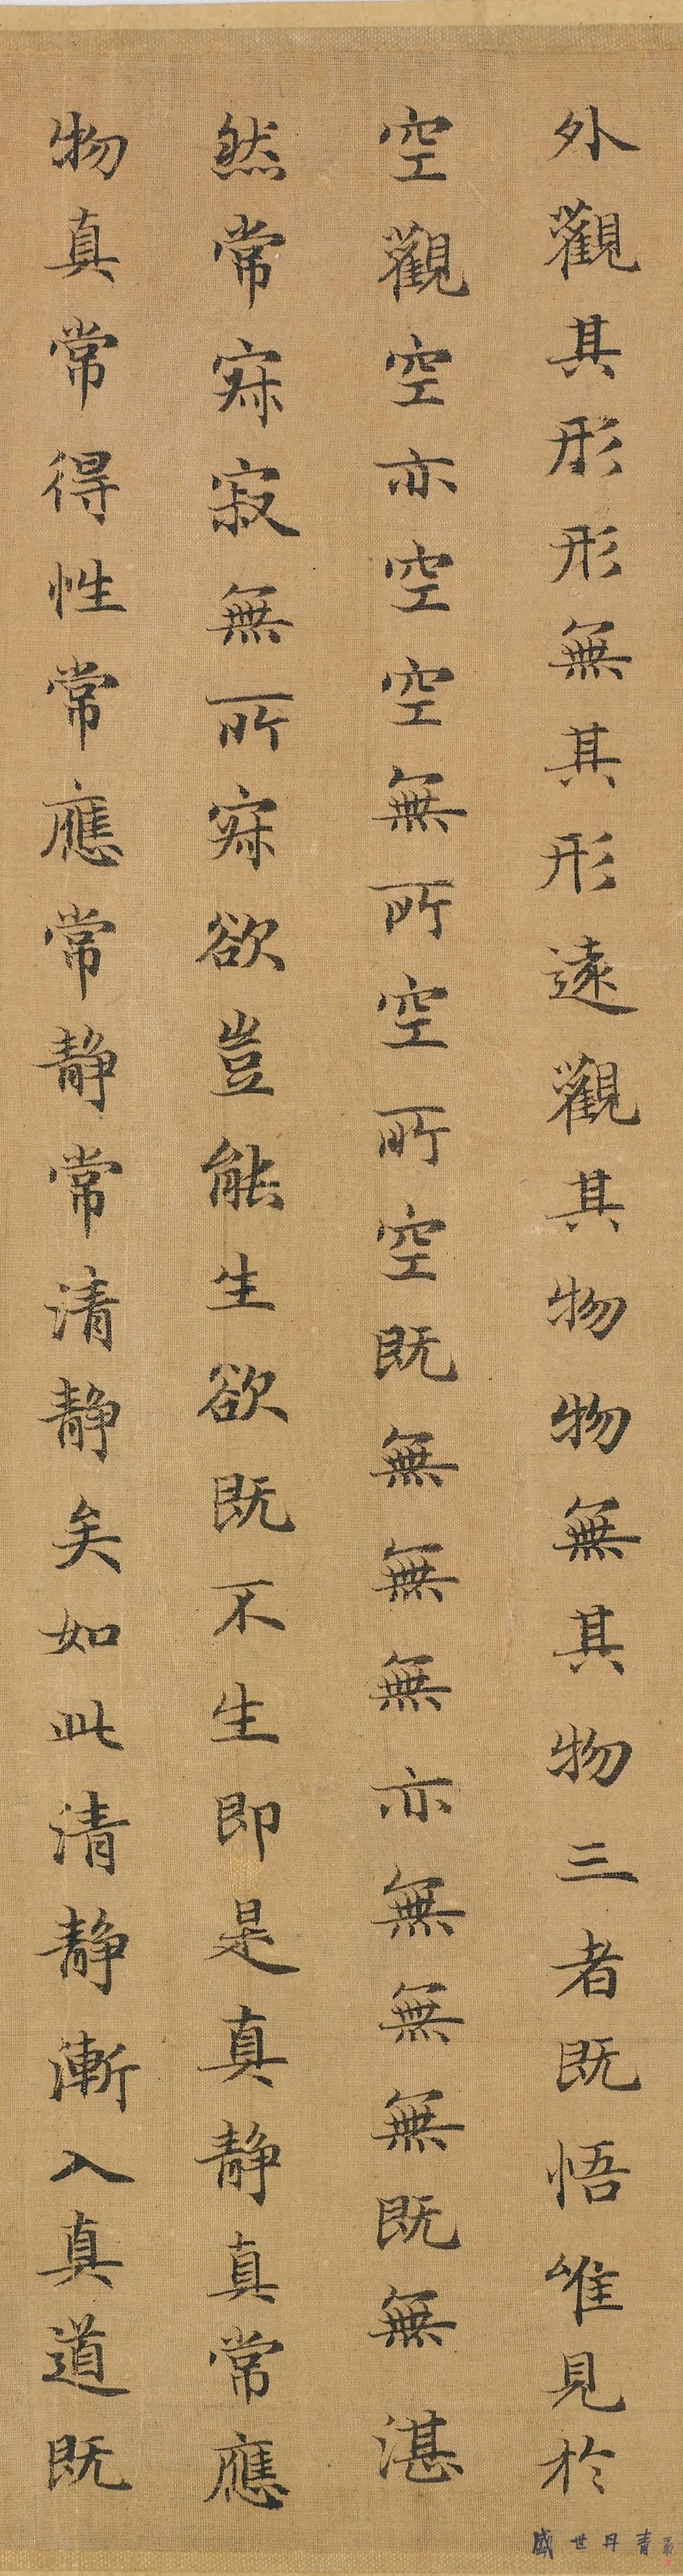 外觀其形形無其形遠觀其物物無其物三者既悟唯見於
空觀空亦空空無所空所空既無無無亦無無無既無湛
然常寂寂無所寂欲豈能生欲既不生即是真靜真常應
物真常得性常應常静常清静矣如此清静漸入真道既
盛世丹青